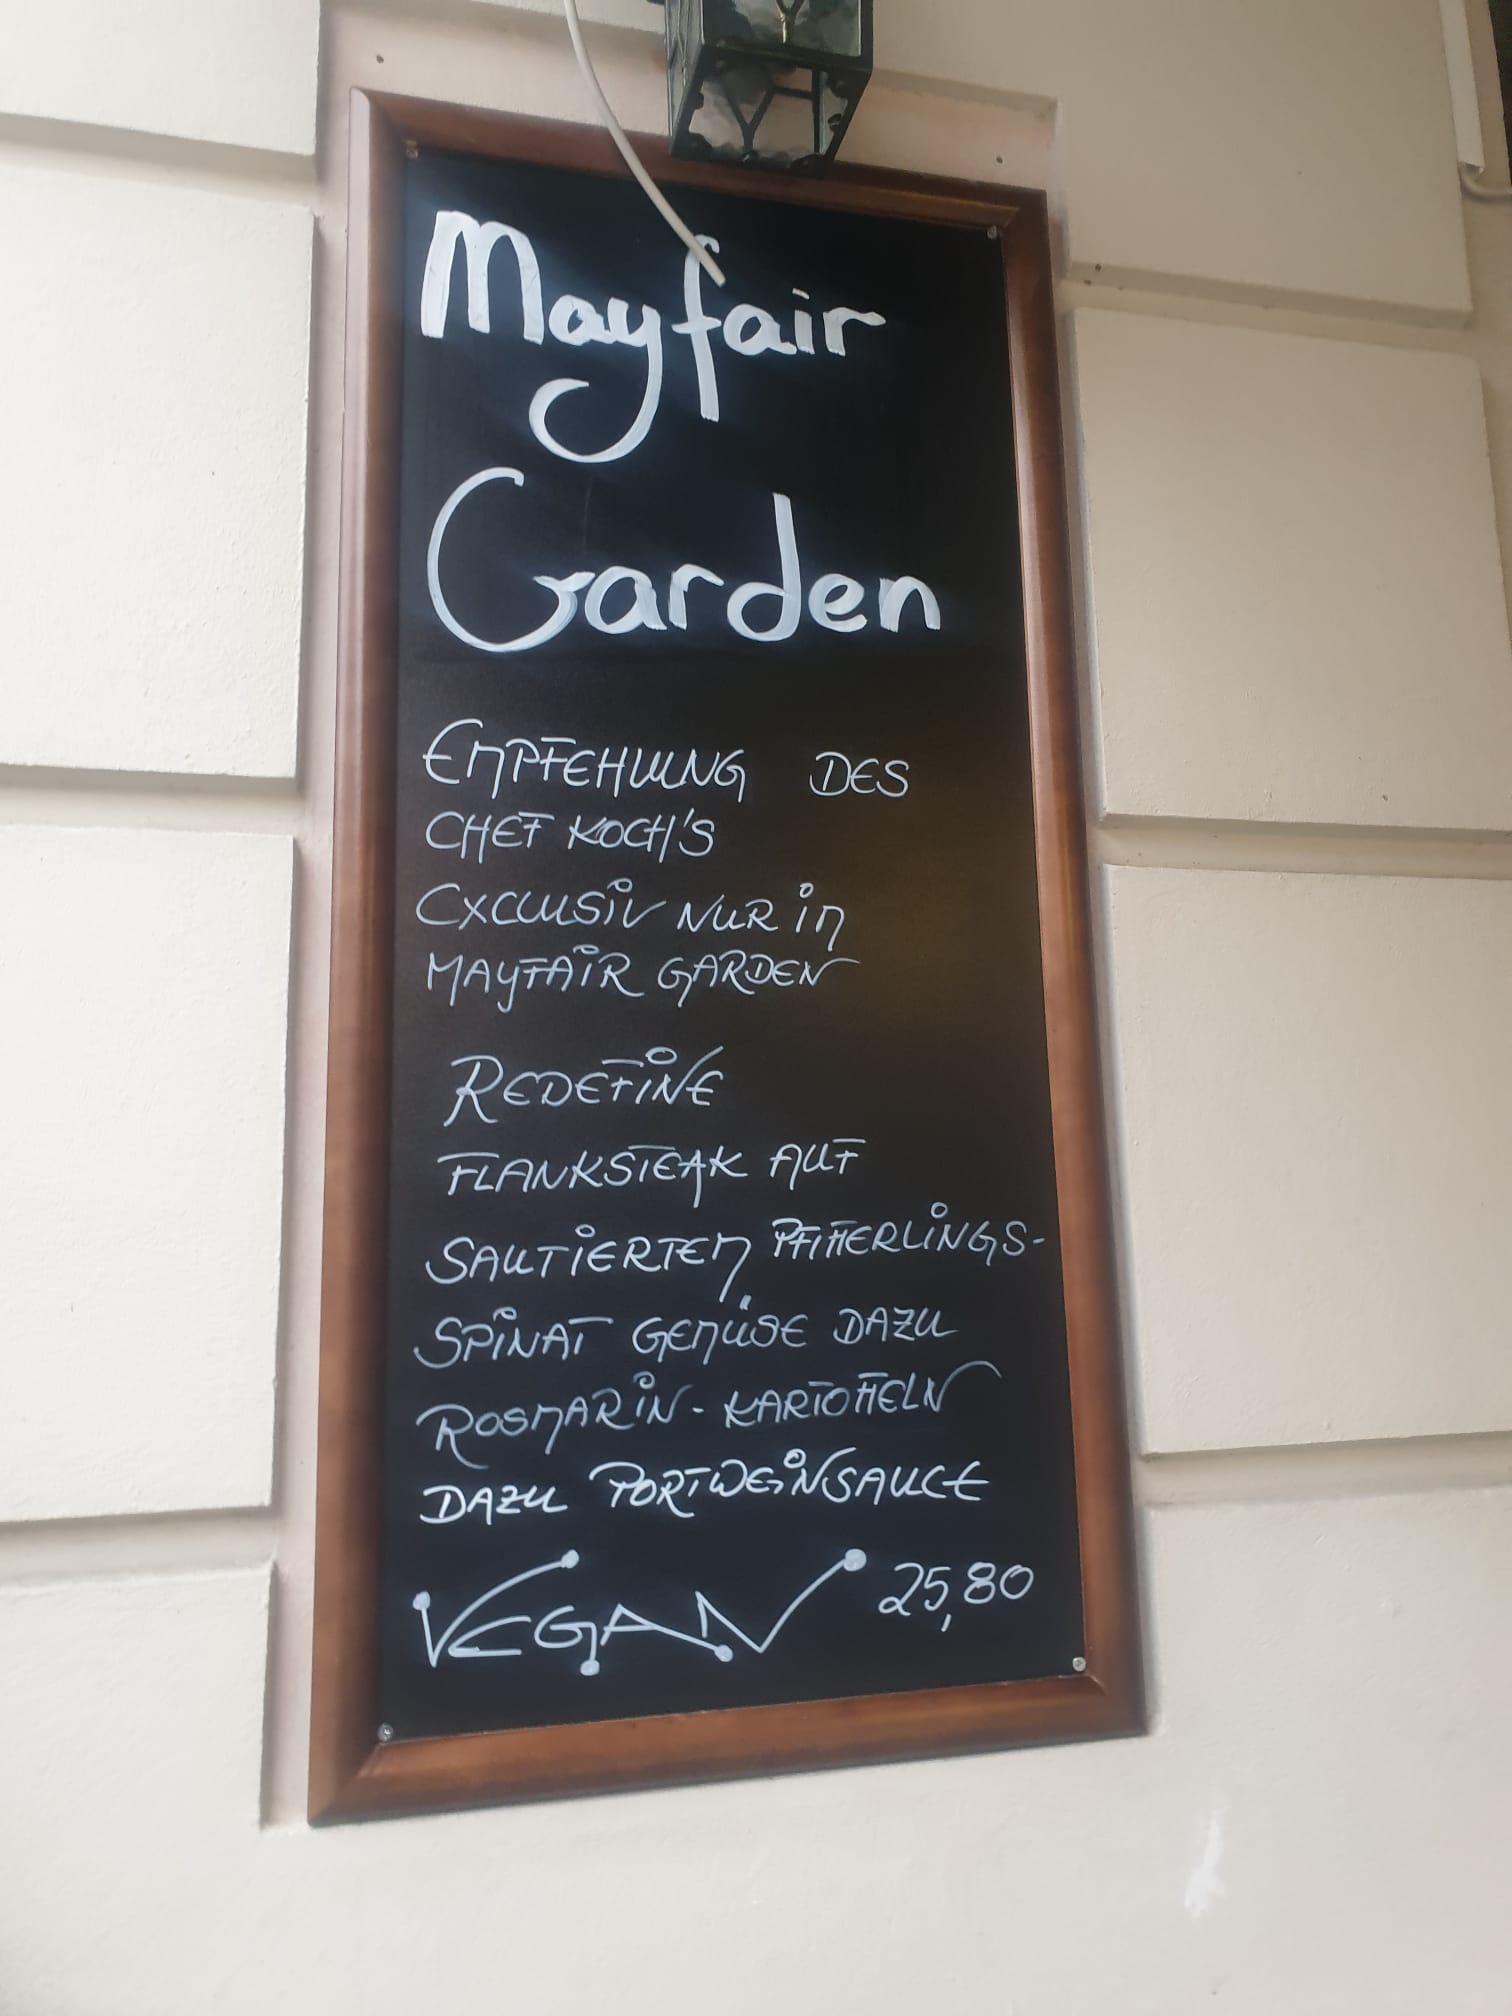 Mayfair
Garden
EMPFEHLUNG DES
CHEF KOCH'S
EXCLUSIV NUR IM
MAYFAIR GARDEN
REDEFINE
FLANKSTEAK AUF
SAUTIERTEM PFIFFERLINGS-
SPINAT GEMÜSE DAZU
ROSMARIN-KARTOFFELN
DAZU PORTWEINSAUCE
VEGAN 25,80